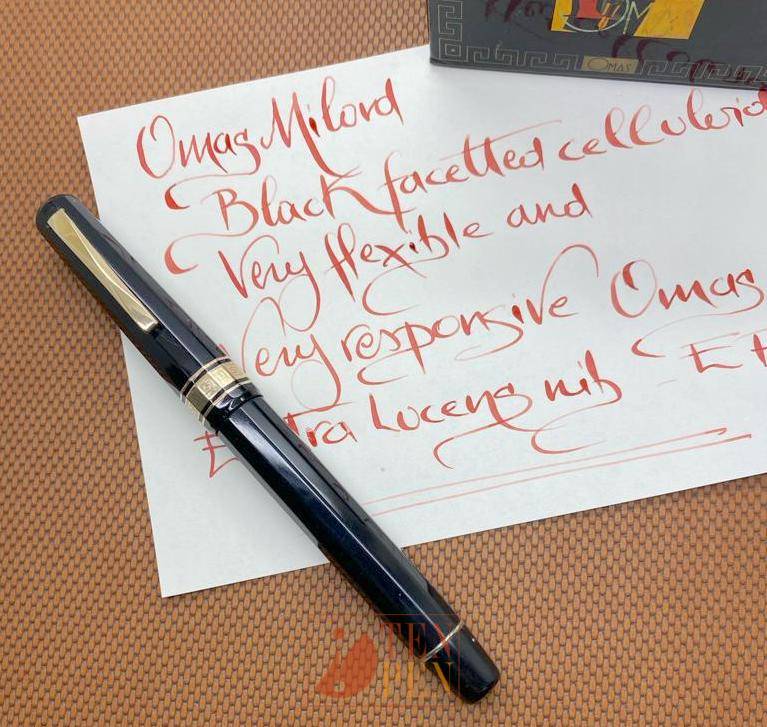 OMAS
Omas Milord
Black facetted celluloid
Very flexible and
Very responsive Omas
Extra Lucens nib - E
TEN
PEN